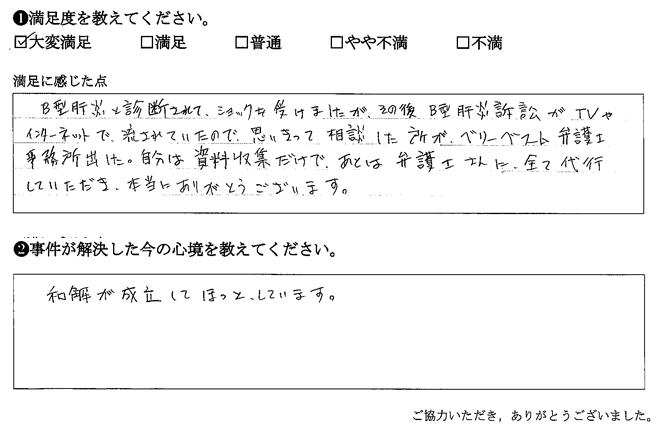 ❶満足度を教えてください。
☑大変満足 □満足 □普通 □やや不満 □不満
満足に感じた点
B型肝炎と診断されて、ショックを受けましたが、その後 B型肝炎訴訟が TVや
インターネットで、流されていたので、思いきって 相談した所が、ベリーベスト弁護士
事務所出した。自分は 資料収集だけで、あとは 弁護士さんに、全て代行
していただき、本当にありがとうございます。
❷事件が解決した今の心境を教えてください。
和解が成立してほっと、しています。
ご協力いただき，ありがとうございました。